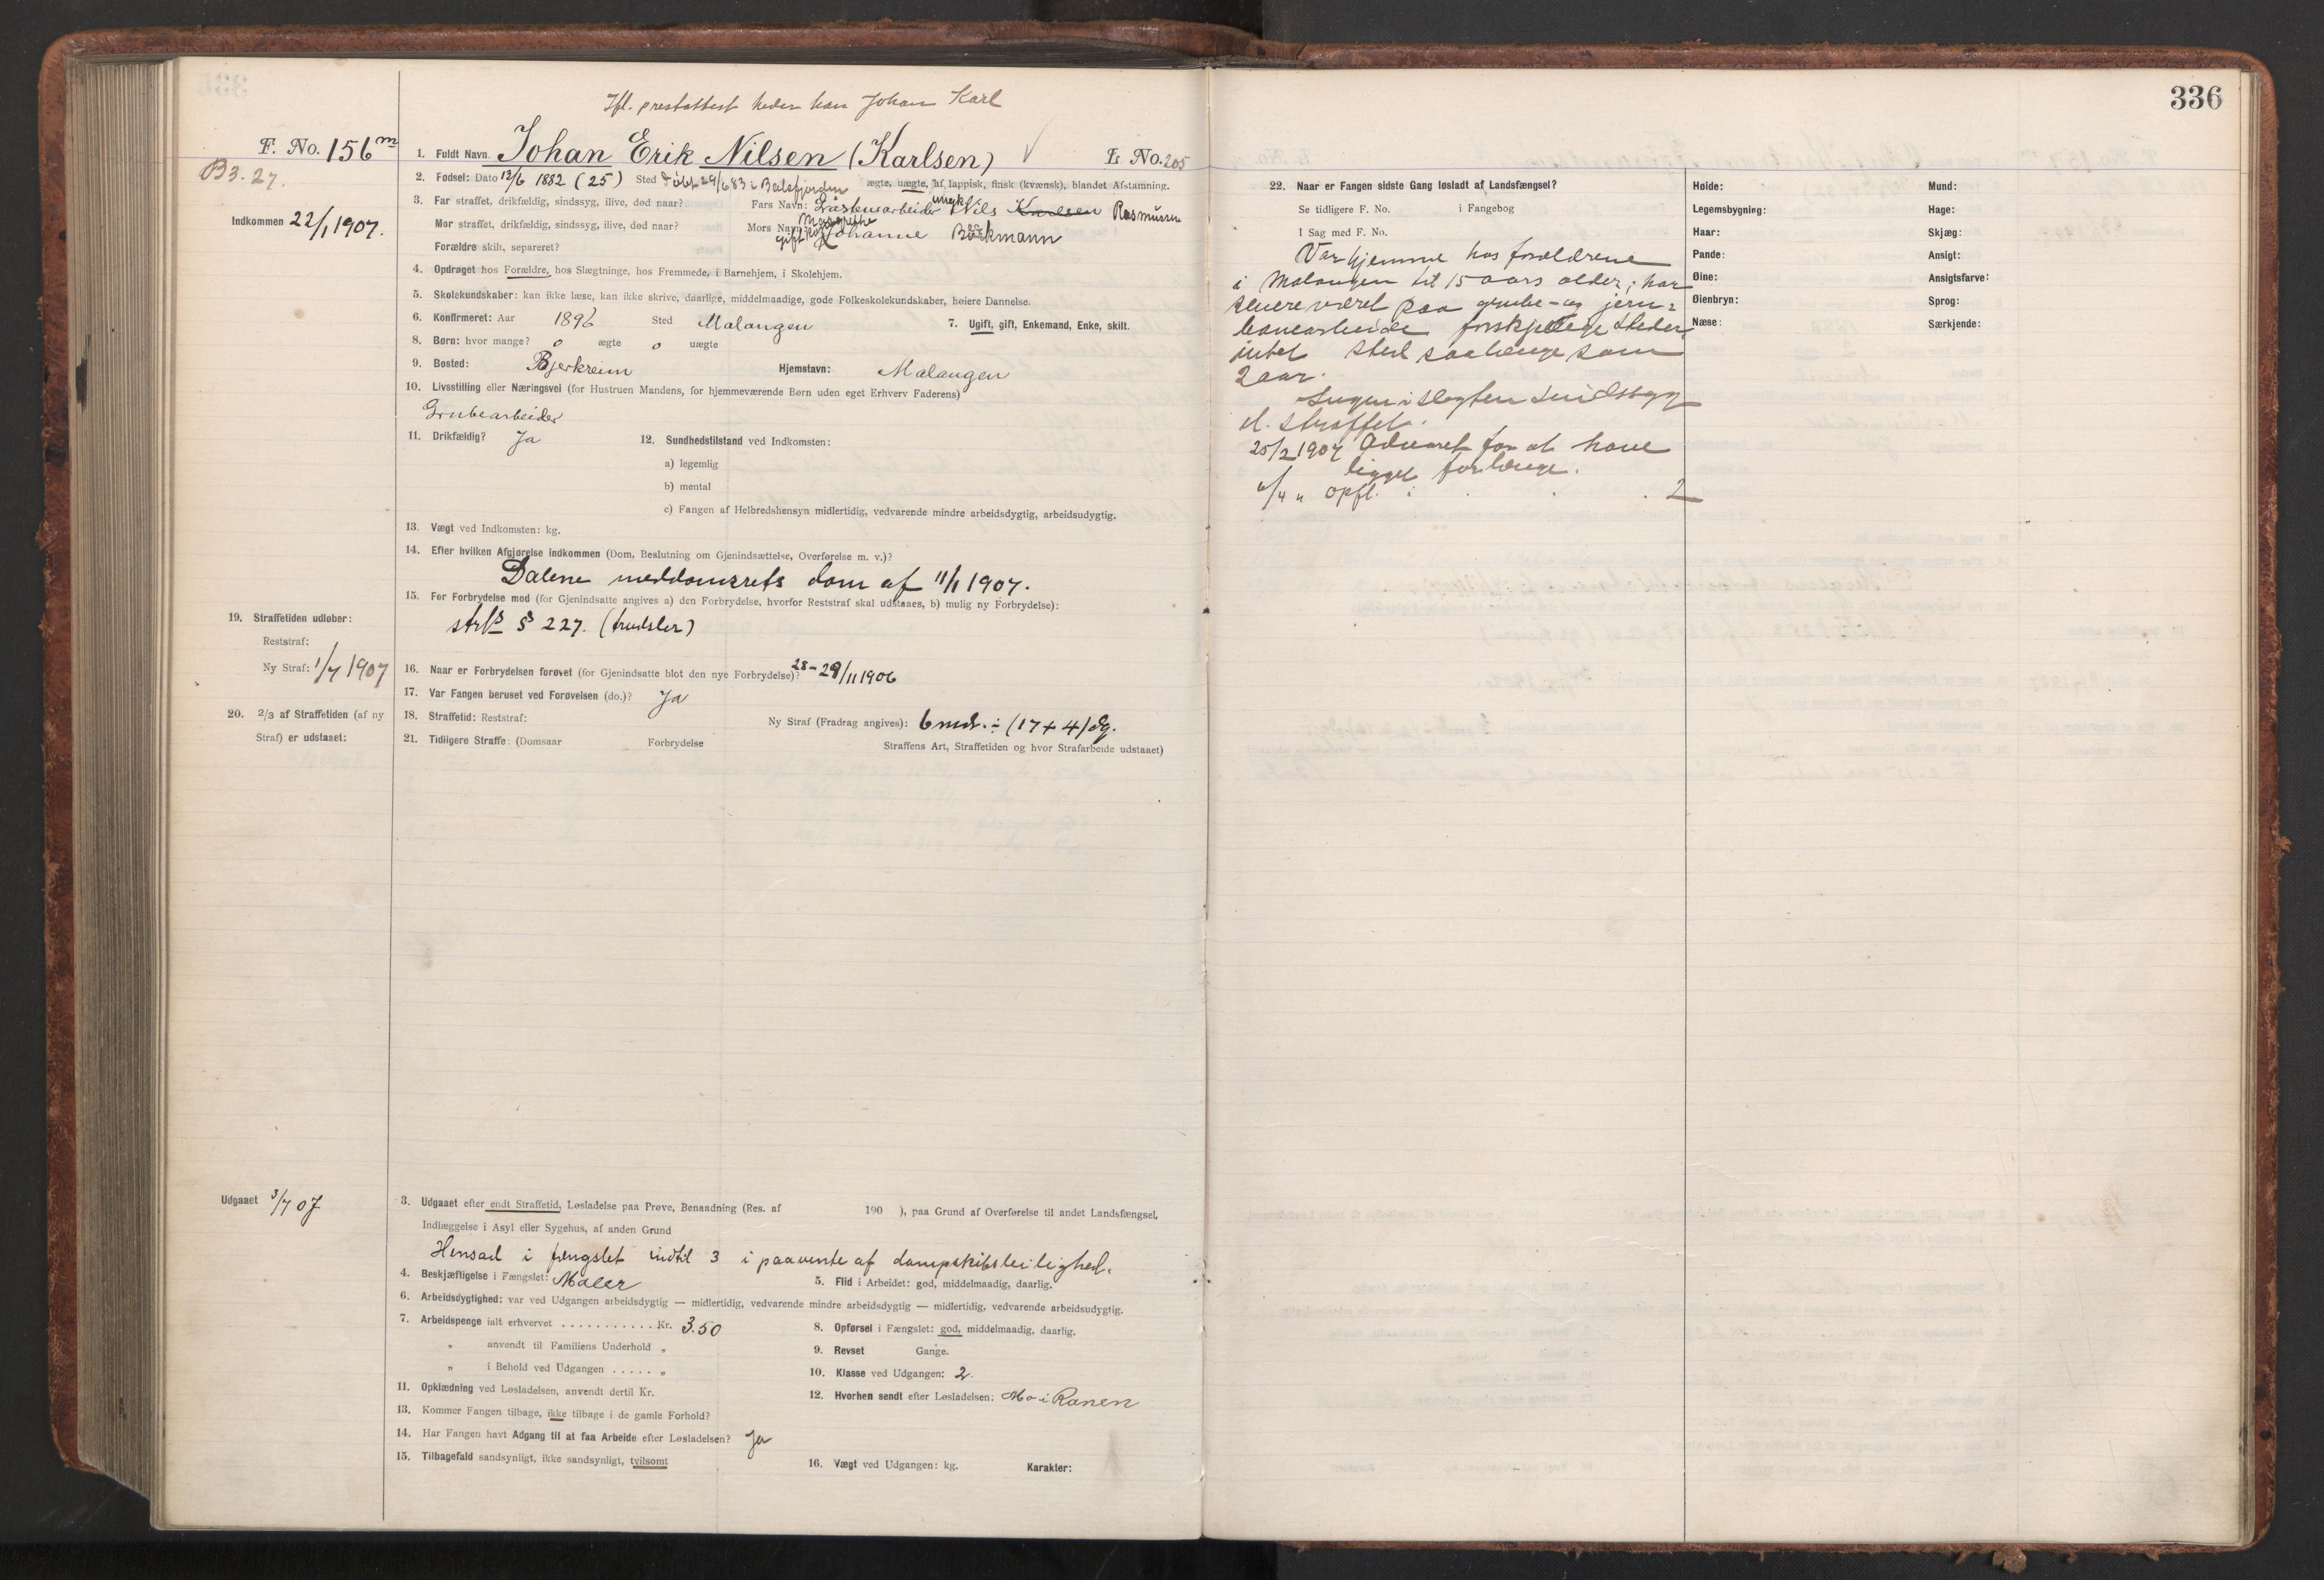 336
Ifl. prestattest heder han Johan Karl
F. No. 156 m
1. Fuldt Navn. Johan Erik Nilsen (Karlsen) L No. 205
B3. 27.
2. Fødsel: Dato 12/6 1882 (25) Sted Døbt 29/6 83 i Balsfjorden ægte, uægte, af lappisk, finsk (kvænsk), blandet Afstamning.
Indkommen 22/1 1907.
3. Far straffet, drikfældig, sindssyg, ilive, død naar? Fars Navn: Nils Karlsen Rasmussen
Mor straffet, drikfældig, sindssyg, ilive, død naar? Mors Navn: Margrethe Johanne Børkmann
Forældre skilt, separeret?
4. Opdraget hos Forældre, hos Slægtninge, hos Fremmede, i Barnehjem, i Skolehjem.
5. Skolekundskaber: kan ikke læse, kan ikke skrive, daarlige, middelmaadige, gode Folkeskolekundskaber, høiere Dannelse.
6. Konfirmeret: Aar 1896 Sted Malangen 7. Ugift, gift, Enkemand, Enke, skilt.
8. Børn: hvor mange? 0 ægte 0 uægte
9. Bosted: Bjerkreim Hjemstavn: Malangen
10. Livsstilling eller Næringsvei (for Hustruen Mandens, for hjemmeværende Børn uden eget Erhverv Faderens)
Grubearbeider
11. Drikfældig? Ja 12. Sundhedstilstand ved Indkomsten:
a) legemlig
b) mental
c) Fangen af Helbredshensyn midlertidig, vedvarende mindre arbeidsdygtig, arbeidsudygtig.
13. Vægt ved Indkomsten: kg.
14. Efter hvilken Afgjørelse indkommen (Dom, Beslutning om Gjenindsættelse, Overførelse m. v.)?
Dalene meddomsrets dom af 11/1 1907.
15. For Forbrydelse mod (for Gjenindsatte angives a) den Forbrydelse, hvorfor Reststraf skal udstaaes, b) mulig ny Forbrydelse):
strfl § 227. (trudsler)
19. Straffetiden udløber:
Reststraf:
Ny Straf: 1/7 1907
16. Naar er Forbrydelsen forøvet (for Gjenindsatte blot den nye Forbrydelse)? 28-29/11 1906
17. Var Fangen beruset ved Forøvelsen (do.)? Ja
20. 2/3 af Straffetiden (af ny Straf) er udstaaet:
18. Straffetid: Reststraf: Ny Straf (Fradrag angives): 6 md. ÷ (17 + 4) dg.
21. Tidligere Straffe: (Domsaar Forbrydelse Straffens Art, Straffetiden og hvor Strafarbeide udstaaet)
Udgaaet 3/7 07
3. Udgaaet efter endt Straffetid, Løsladelse paa Prøve, Benaadning (Res. af 190 ), paa Grund af Overførelse til andet Landsfængsel,
Indlæggelse i Asyl eller Sygehus, af anden Grund
Hensad i fængslet indtil 3 i paavente af dampskibsleilighed.
4. Beskjæftigelse i Fængslet: Maler 5. Flid i Arbeidet: god, middelmaadig, daarlig.
6. Arbeidsdygtighed: var ved Udgangen arbeidsdygtig — midlertidig, vedvarende mindre arbeidsdygtig — midlertidig, vedvarende arbeidsudygtig.
7. Arbeidspenge ialt erhvervet . . . . . . . . . . . Kr. 3.50 8. Opførsel i Fængslet: god, middelmaadig, daarlig.
„ anvendt til Familiens Underhold „ 9. Revset Gange.
„ i Behold ved Udgangen . . . . . „ 10. Klasse ved Udgangen: 2.
11. Opklædning ved Løsladelsen, anvendt dertil Kr. 12. Hvorhen sendt efter Løsladelsen: Mo i Ranen
13. Kommer Fangen tilbage, ikke tilbage i de gamle Forhold?
14. Har Fangen havt Adgang til at faa Arbeide efter Løsladelsen? Ja
15. Tilbagefald sandsynligt, ikke sandsynligt, tvilsomt 16. Vægt ved Udgangen: kg. Karakter:
22. Naar er Fangen sidste Gang løsladt af Landsfængsel?
Se tidligere F. No. i Fangebog
I Sag med F. No.
Var hjemme hos forældrene
i Malangen til 15 aars alder; har
senere været paa grube- og jern-
banearbeide forskjellige steder,
intet sted saalænge som
2 aar.
Ingen i slegten sindssyg
el. straffet.
25/2 1907 Advaret for at have
ligget forlænge.
6/4 „ Opfl. i 2
Høide: Mund:
Legemsbygning: Hage:
Haar: Skjæg:
Pande: Ansigt:
Øine: Ansigtsfarve:
Øienbryn: Sprog:
Næse: Særkjende: